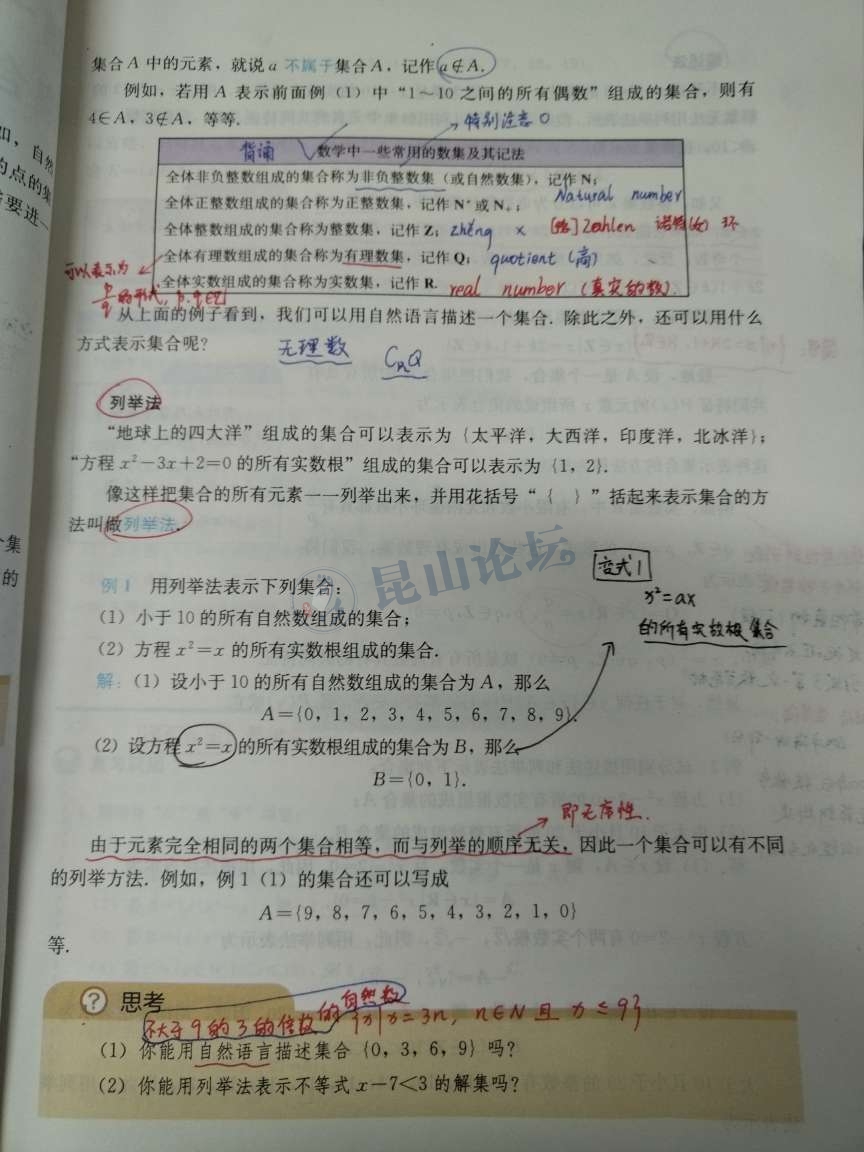 集合A中的元素，就说a 不属于集合A，记作a∉A.
例如，若用A表示前面例（1）中“1～10之间的所有偶数”组成的集合，则有
4∈A，3∉A，等等.
特别注意0
背诵
数学中一些常用的数集及其记法
全体非负整数组成的集合称为非负整数集（或自然数集），记作N；
Natural number
全体正整数组成的集合称为正整数集，记作N*或N₊；
全体整数组成的集合称为整数集，记作Z；
zhěng × [德] Zahlen 诺特(女) 环
全体有理数组成的集合称为有理数集，记作Q；
quotient (商)
全体实数组成的集合称为实数集，记作R.
real number (真实的数).
可以表示为
p/q的形式, p.q∈Z
从上面的例子看到，我们可以用自然语言描述一个集合. 除此之外，还可以用什么
方式表示集合呢？
无理数 C_RQ
列举法
“地球上的四大洋”组成的集合可以表示为{太平洋，大西洋，印度洋，北冰洋}；
“方程x²－3x＋2＝0的所有实数根”组成的集合可以表示为{1，2}.
像这样把集合的所有元素一一列举出来，并用花括号“{ }”括起来表示集合的方
法叫做列举法.
昆山论坛
变式1
x²=ax
的所有实数根 集合
例1 用列举法表示下列集合：
（1）小于10的所有自然数组成的集合；
（2）方程x²＝x的所有实数根组成的集合.
解：（1）设小于10的所有自然数组成的集合为A，那么
A＝{0，1，2，3，4，5，6，7，8，9}.
（2）设方程x²＝x的所有实数根组成的集合为B，那么
B＝{0，1}.
即无序性.
由于元素完全相同的两个集合相等，而与列举的顺序无关，因此一个集合可以有不同
的列举方法. 例如，例1（1）的集合还可以写成
A＝{9，8，7，6，5，4，3，2，1，0}
等.
? 思考
不大于9的3的倍数的自然数 {x|x=3n, n∈N 且 x≤9}
（1）你能用自然语言描述集合{0，3，6，9}吗？
（2）你能用列举法表示不等式x－7＜3的解集吗？
自然
的点的集
要进一
集
的